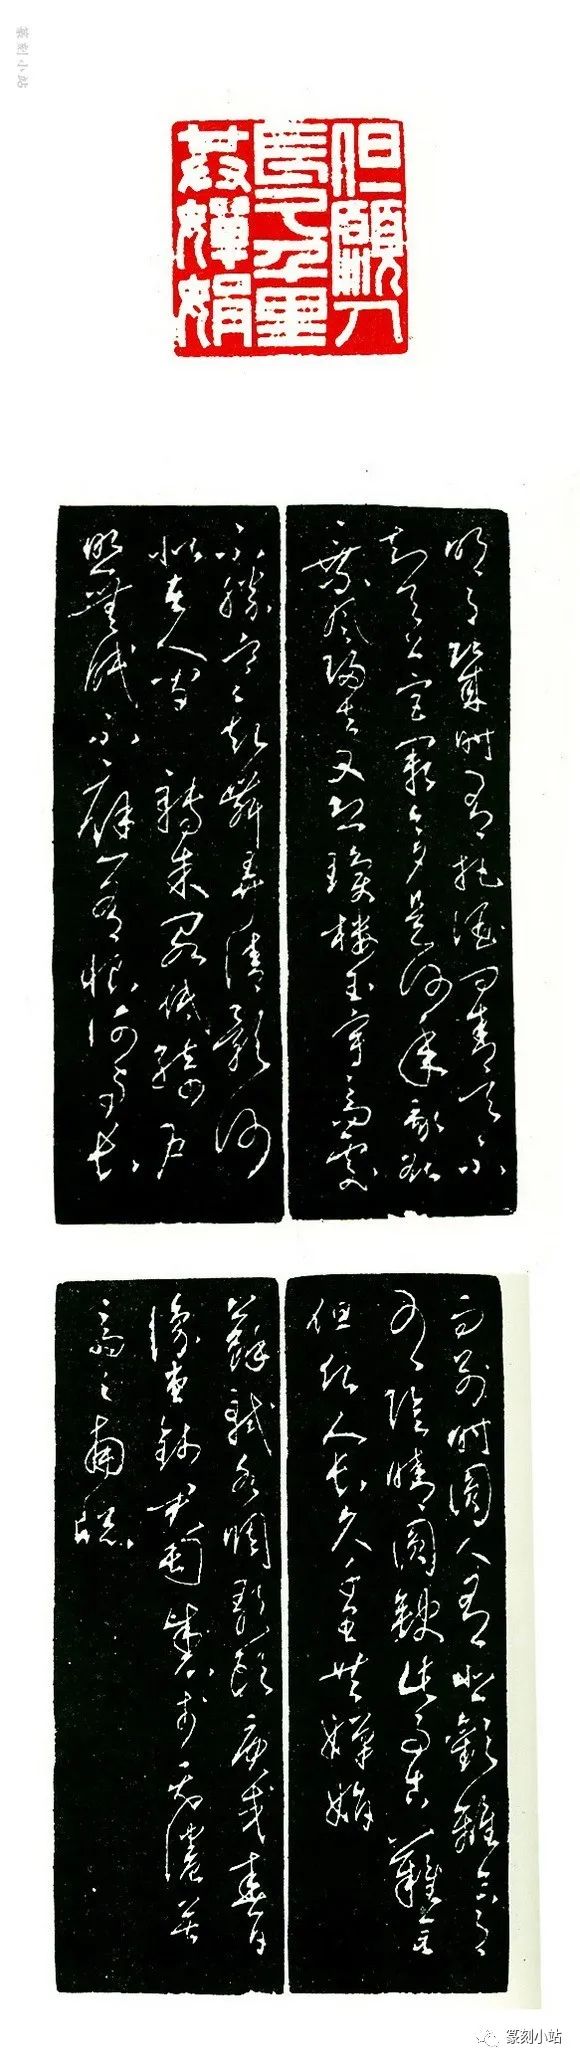 篆刻小站
但願人
長久千里
共嬋娟
明月幾時有把酒問青天不
知天上宮闕今夕是何年我欲
乘風歸去又恐瓊樓玉宇高處
不勝寒起舞弄清影何
似在人間轉朱閣低綺戶
照無眠不應有恨何事長
向別時圓人有悲歡離合月
有陰晴圓缺此事古難全
但願人長久千里共嬋娟
蘇軾水調歌頭庚戌春日
齋之南牕
篆刻小站